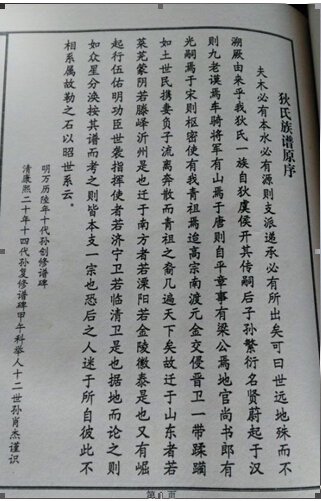 狄氏族谱原序
夫木必有本水必有源则支派递承必有所出矣可曰世远地殊而不
溯厥由来乎我狄氏一族自狄虞侯开其传嗣后子孙繁衍名贤蔚起于汉
则九老谟焉车骑将军有山焉于唐则自平章事有梁公焉地官尚书郎有
光嗣焉于宋则枢密使有我青祖焉迨高宗南渡元金交侵晋卫一带蹂躏
如土世民携妻负子流离奔散而青祖之裔几遍天下矣故迁于山东者若
莱芜蒙阴若滕峄沂州是也迁于南方者若溧阳若金陵徽泰是也又有崛
起行伍佑明功臣世袭指挥使者若济宁卫若临清卫是也据地而论之则
如众星分涣按其谱而考之则皆本支一宗也恐后之人迷于所自彼此不
相系属故勒之石以昭世系云。
明万历陆年十代孙创修谱碑
清康熙二十年十四代孙复修谱碑甲午科举人十二世孙肖杰谨识
第 页